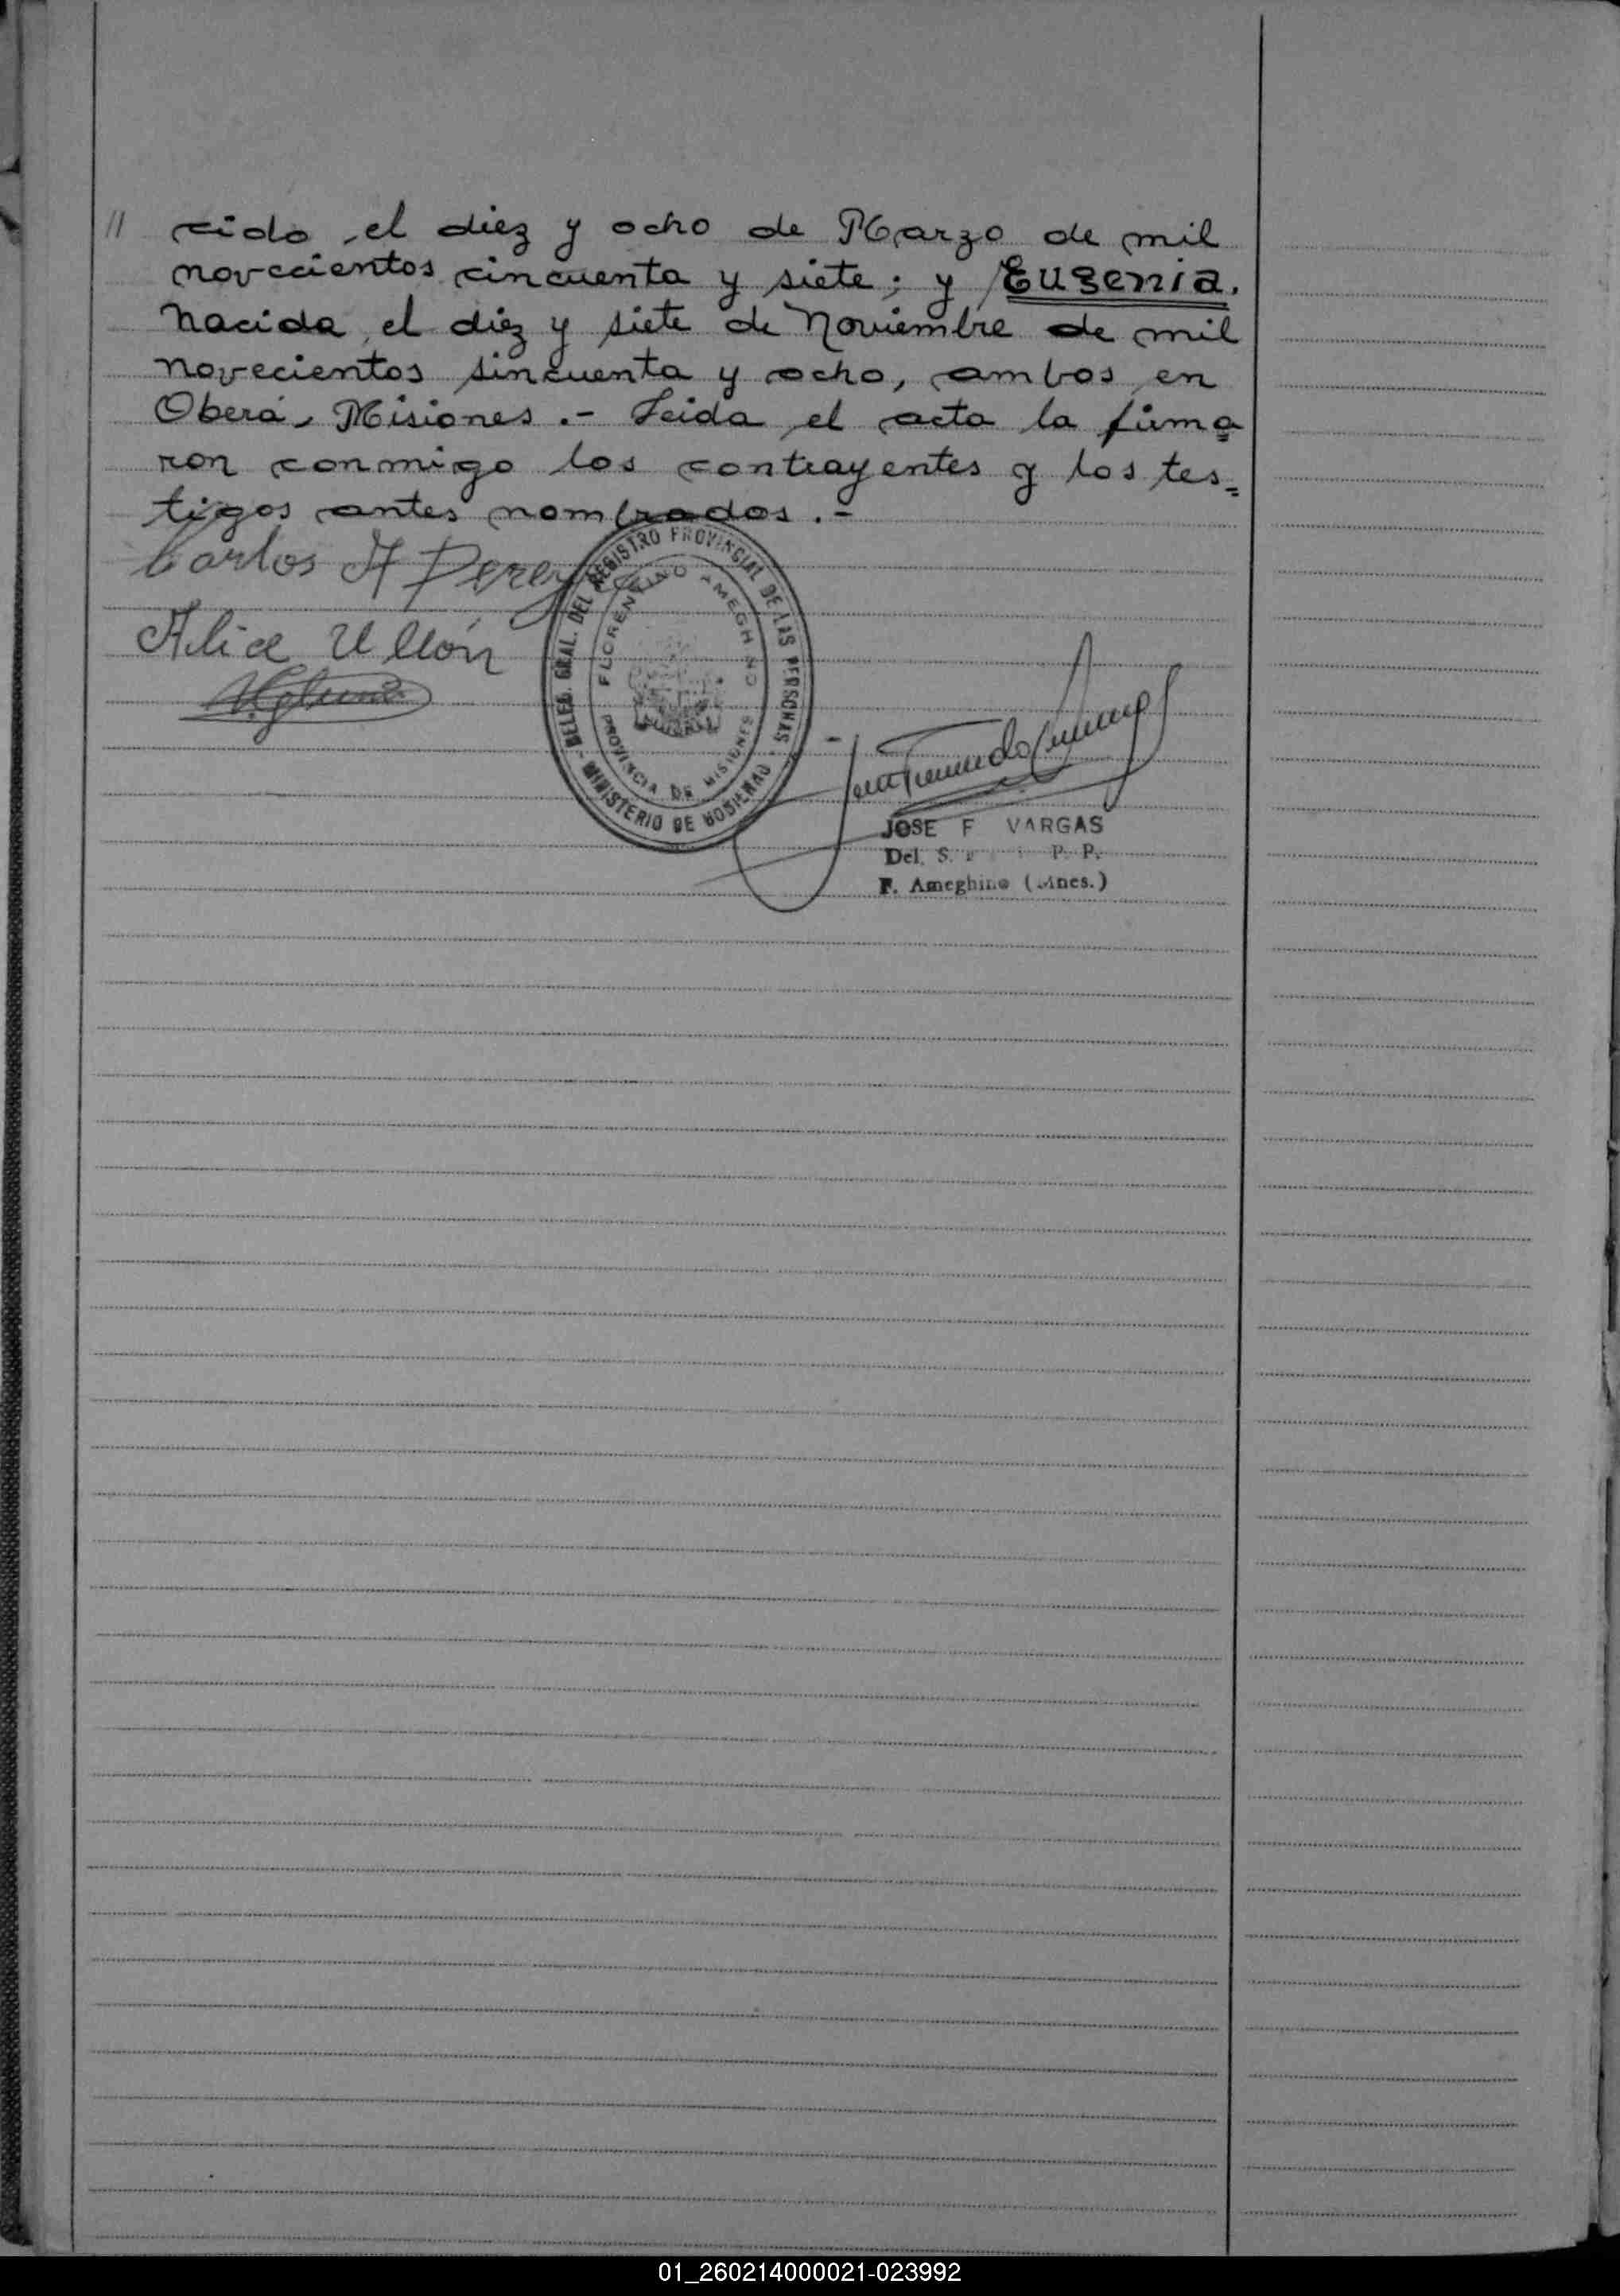 // cido el diez y ocho de Marzo de mil
novecientos cincuenta y siete; y Eugenia.
Nacida el diez y siete de Noviembre de mil
novecientos sincuenta y ocho, ambos en
Oberá, Misiones.- Leida el acta la firma
ron conmigo los contrayentes y los tes=
tigos antes nombrados.-
Carlos A Pereyra
Alice Ullón
DELEG. GRAL. DEL REGISTRO PROVINCIAL DE LAS PERSONAS
MINISTERIO DE GOBIERNO
FLORENTINO AMEGHINO
PROVINCIA DE MISIONES
JOSE F VARGAS
Del. S. P. P.
F. Ameghino (Mnes.)
01_260214000021-023992